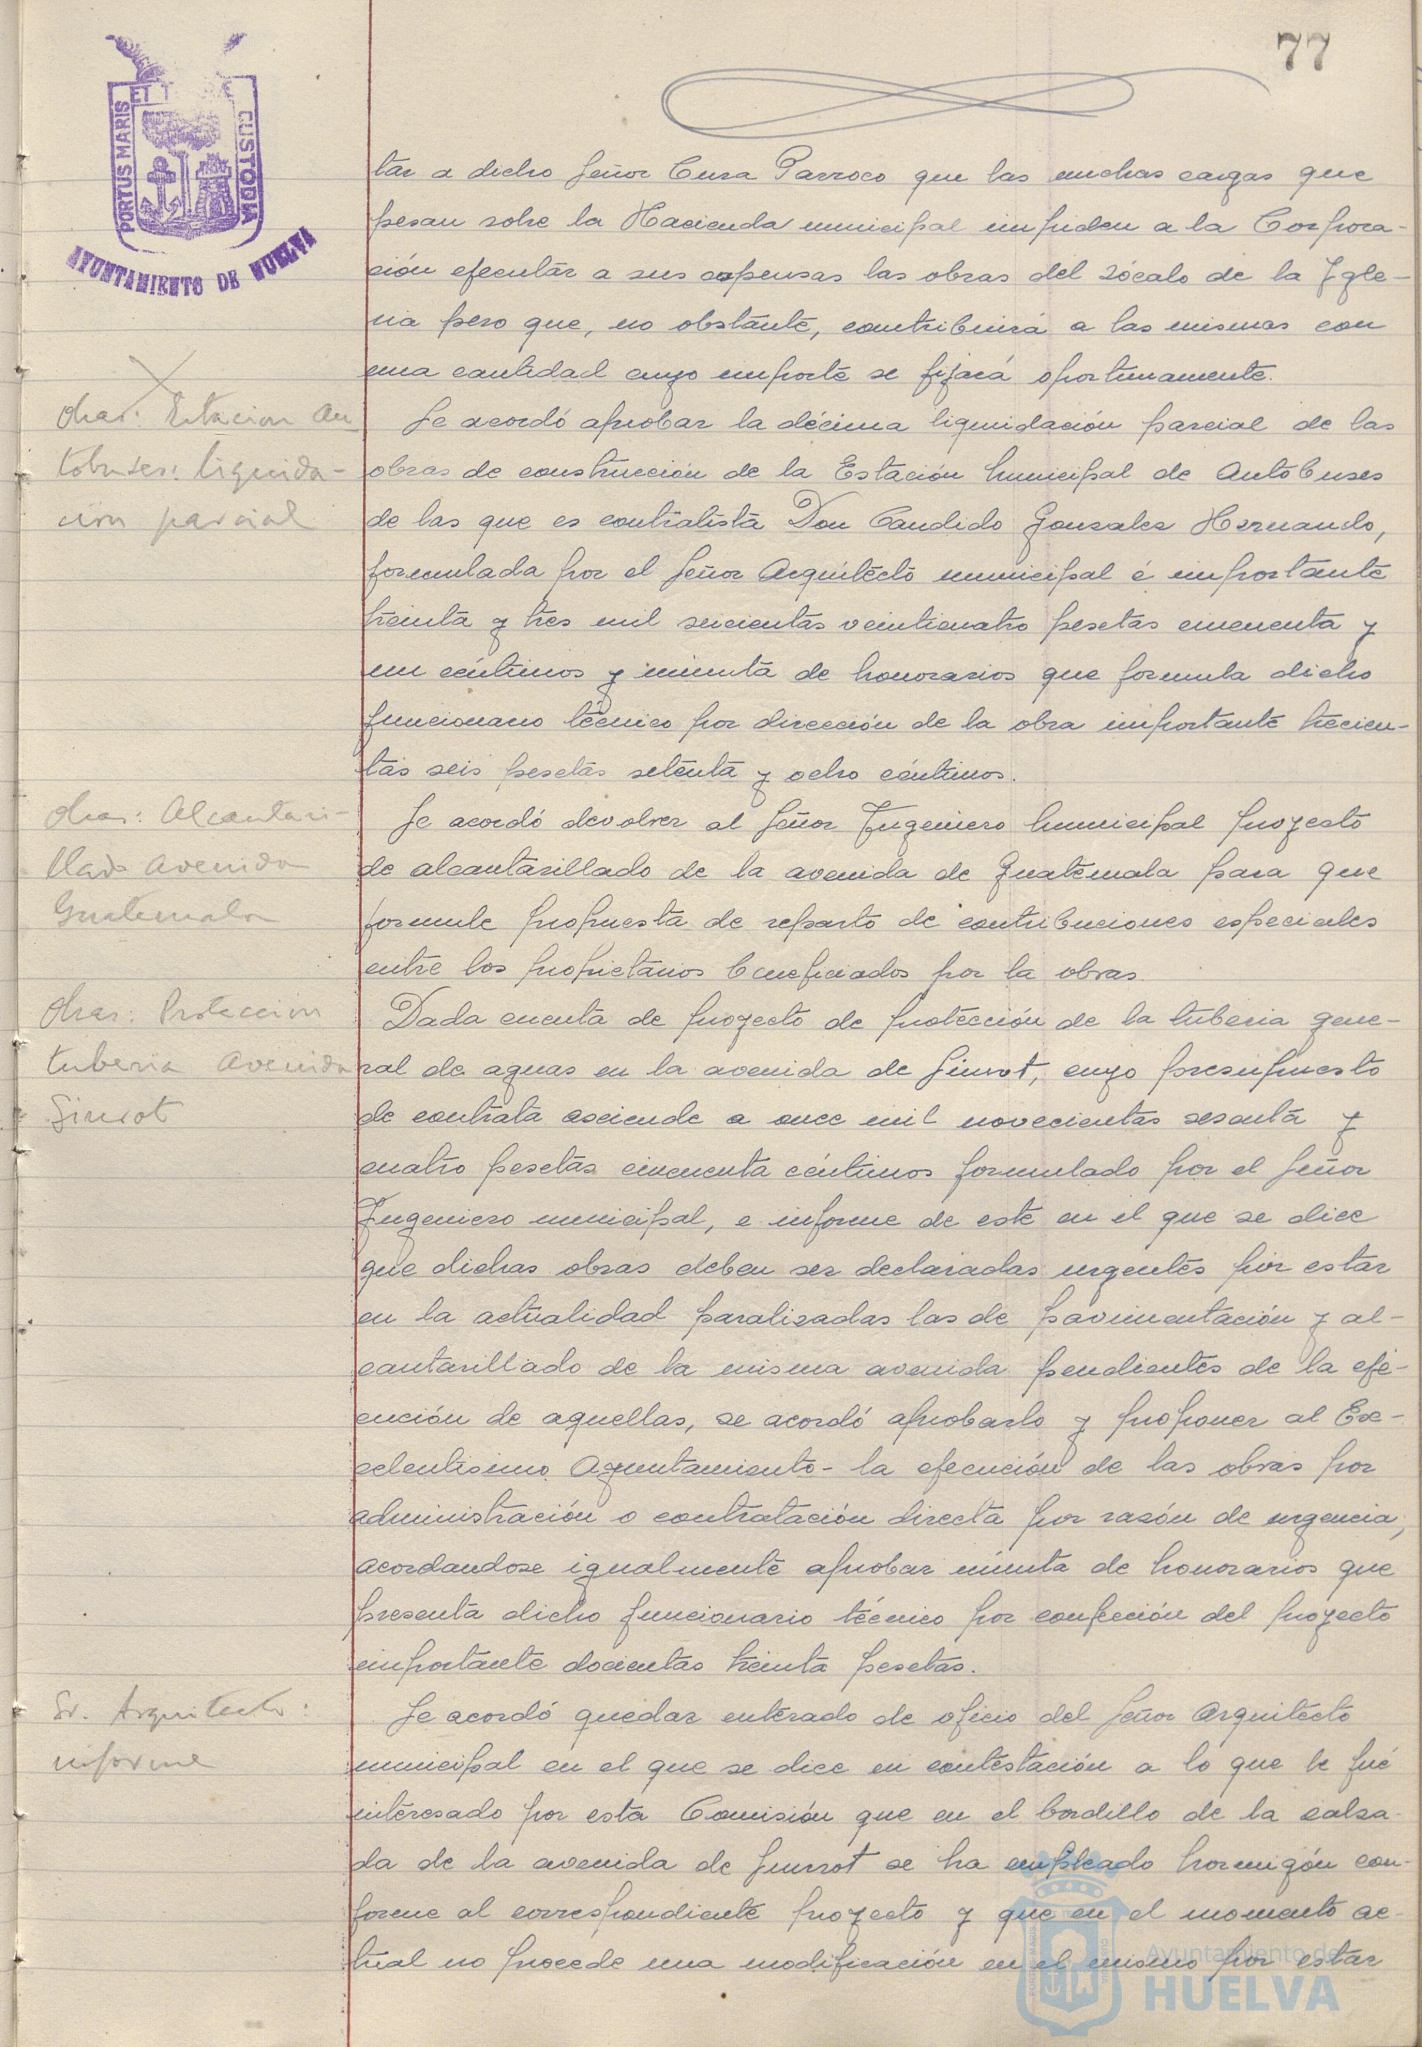 77
PORTUS MARIS ET T CUSTODIA
AYUNTAMIENTO DE HUELVA
tar a dicho Señor Cura Parroco que las muchas cargas que
pesan sobre la Hacienda municipal impiden a la Corpora-
ción ejecutar a sus expensas las obras del zócalo de la Igle-
sia pero que, no obstante, contribuirá a las mismas con
una cantidad cuyo importe se fijará oportunamente.
Obras: Estacion Au
tobuses: liquida-
cion parcial
Se acordó aprobar la décima liquidación parcial de las
obras de construcción de la Estación Municipal de Autobuses
de las que es contratista Don Candido Gonzalez Hernando,
formulada por el Señor Arquitecto municipal é importante
treinta y tres mil seicientas veinticuatro pesetas cincuenta y
un céntimos y minuta de honorarios que formula dicho
funcionario técnico por dirección de la obra importante trecien-
tas seis pesetas setenta y ocho céntimos.
Obras: Alcantari-
llado Avenida
Guatemala
Se acordó devolver al Señor Ingeniero Municipal proyecto
de alcantarillado de la avenida de Guatemala para que
formule propuesta de reparto de contribuciones especiales
entre los propietarios beneficiados por la obras.
Obras: Proteccion
tuberia Avenida
Gimrot
Dada cuenta de proyecto de protección de la tuberia gene-
ral de aguas en la avenida de Gimrot, cuyo presupuesto
de contrata asciende a once mil novecientas sesenta y
cuatro pesetas cincuenta céntimos formulado por el Señor
Ingeniero municipal, e informe de este en el que se dice
que dichas obras deben ser declaradas urgentes por estar
en la actualidad paralizadas las de pavimentación y al-
cantarillado de la misma avenida pendientes de la eje-
cución de aquellas, se acordó aprobarlo y proponer al Ex-
celentisimo Ayuntamiento - la ejecución de las obras por
administración o contratación directa por razón de urgencia,
acordandose igualmente aprobar minuta de honorarios que
presenta dicho funcionario técnico por confección del proyecto
importante docientas treinta pesetas.
Sr. Arquitecto:
informe
Se acordó quedar enterado de oficio del Señor Arquitecto
municipal en el que se dice en contestación a lo que le fué
interesado por esta Comisión que en el bordillo de la calza-
da de la avenida de Gumrot se ha empleado hormigón con-
forme al correspondiente proyecto y que en el momento ac-
tual no procede una modificación en el mismo por estar
Ayuntamiento de
HUELVA